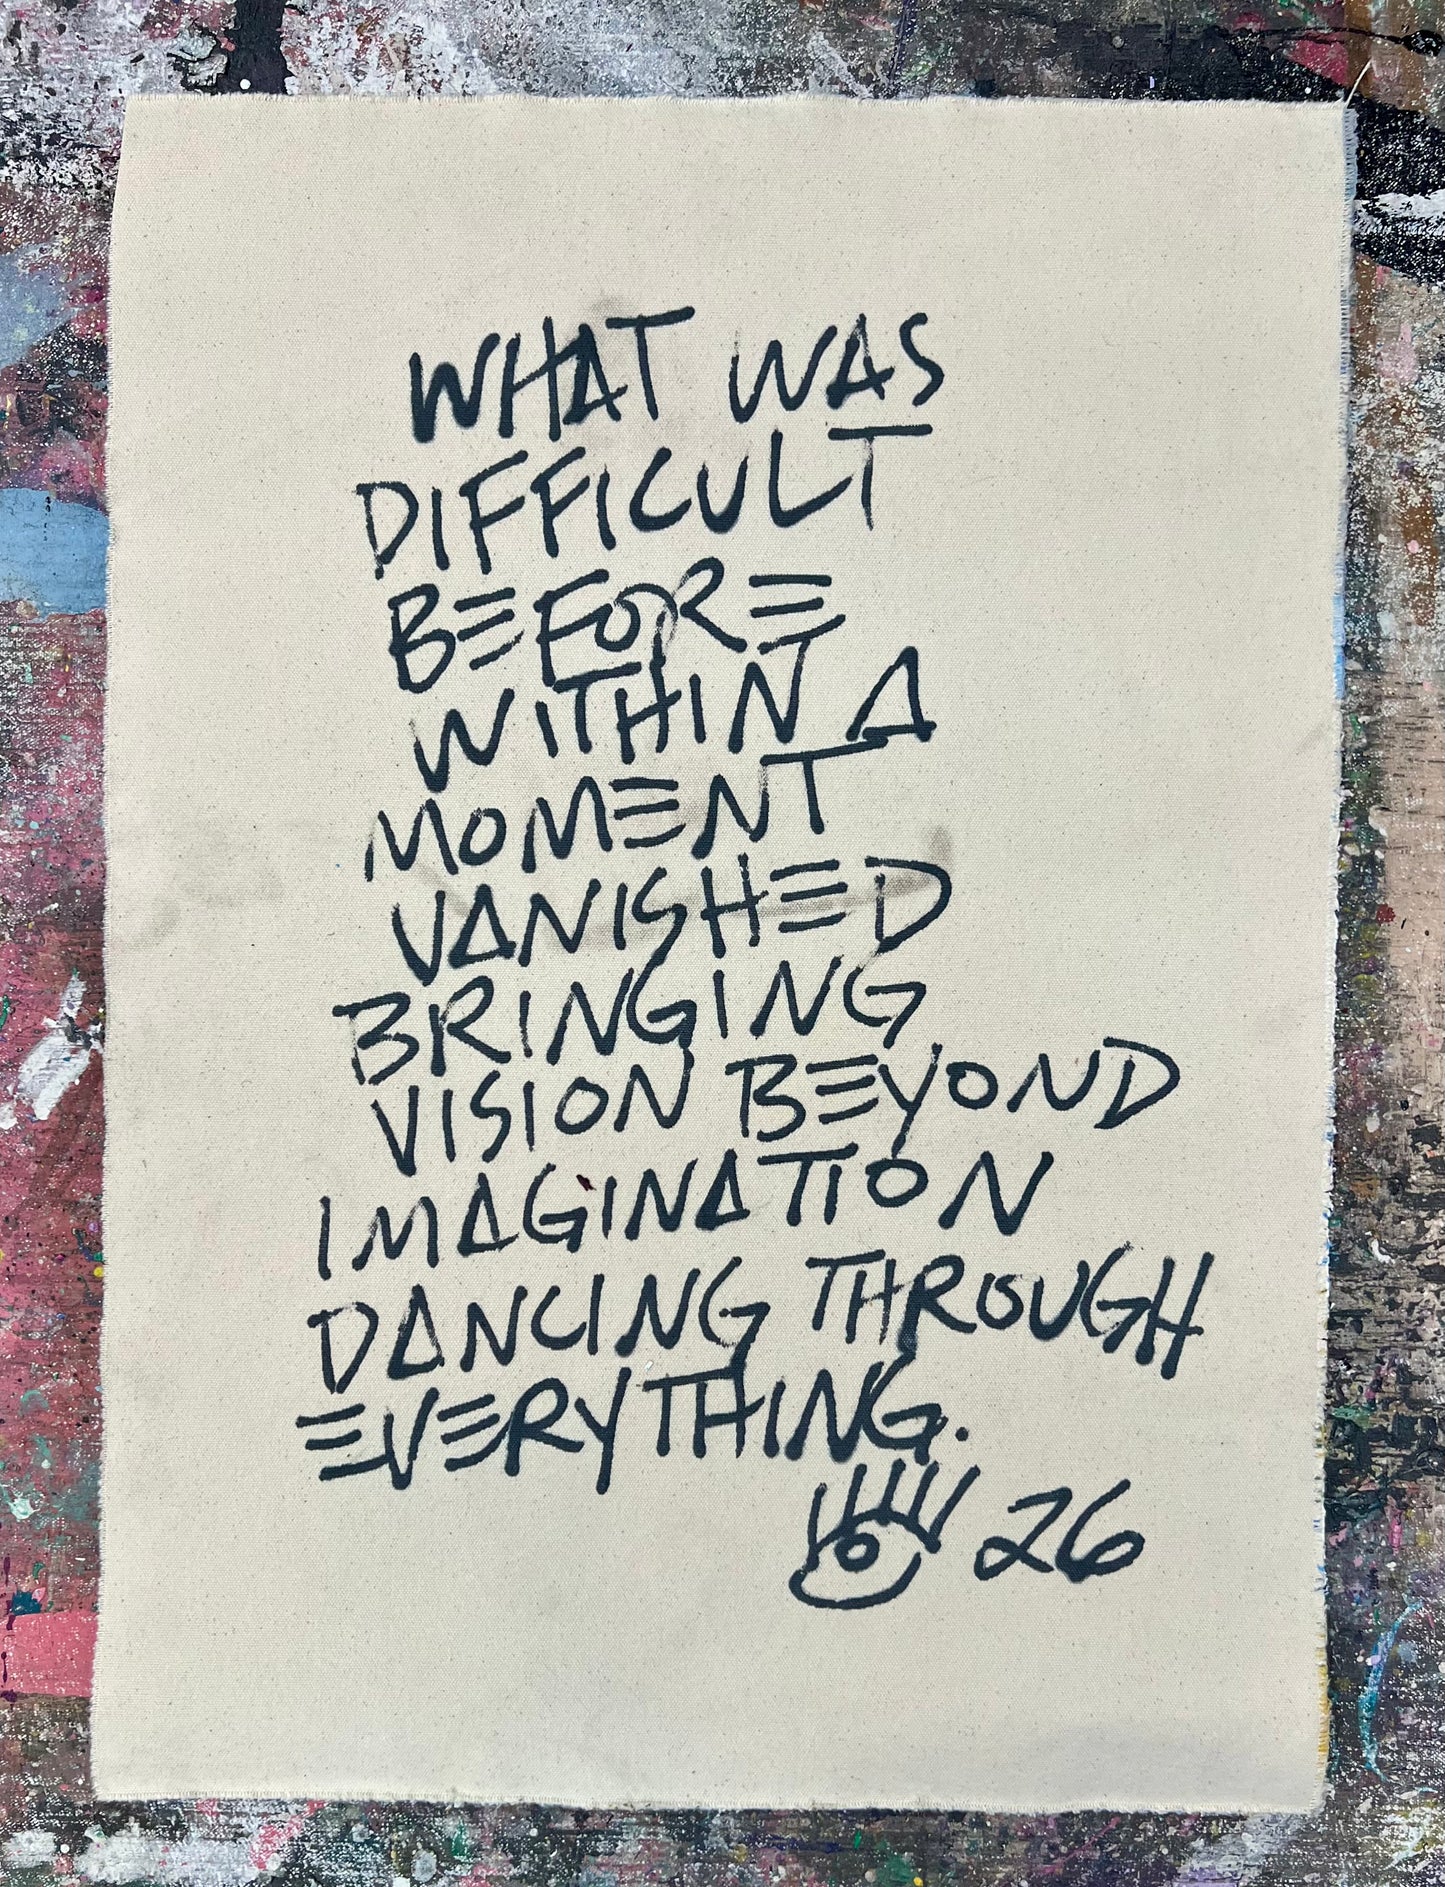 WHAT WAS
DIFFICULT
BEFORE
WITHIN A
MOMENT
VANISHED
BRINGING
VISION BEYOND
IMAGINATION
DANCING THROUGH
EVERYTHING.
26